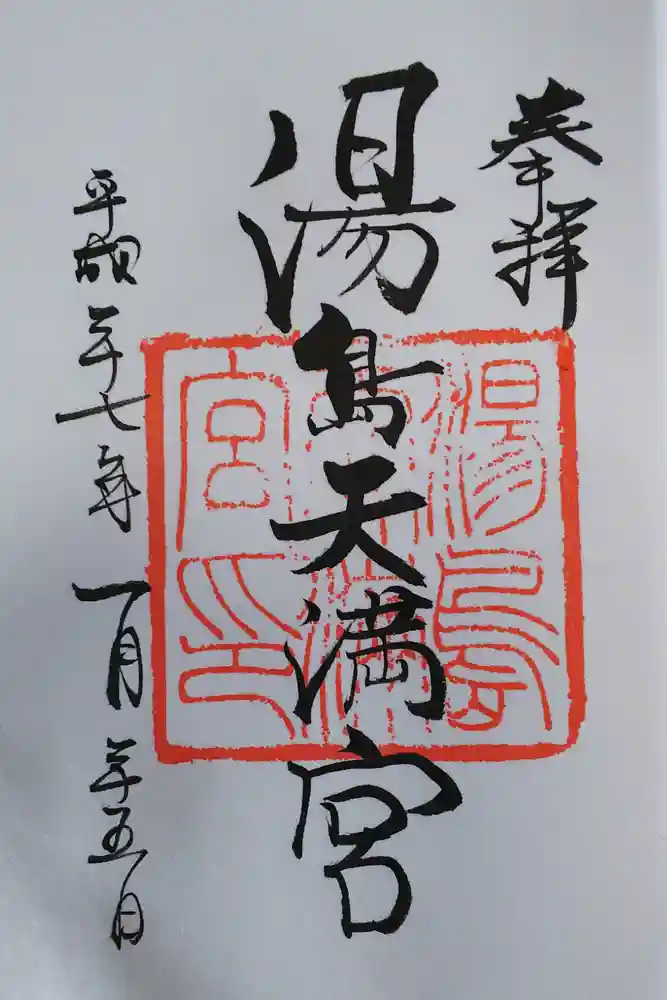 奉拝
湯島天満宮
湯島天満宮印
平成二十七年一月二十五日